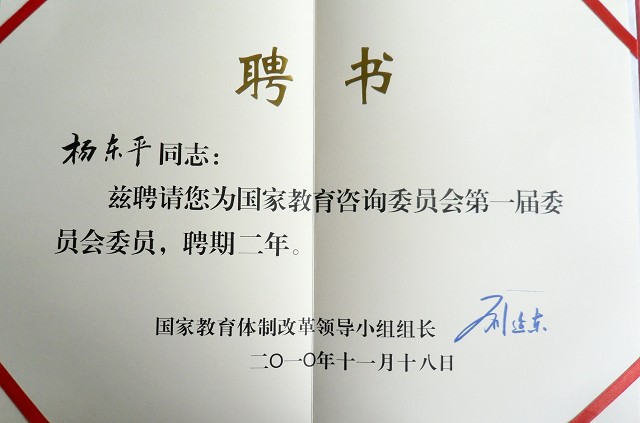 聘书
杨东平同志：
兹聘请您为国家教育咨询委员会第一届委
员会委员，聘期二年。
国家教育体制改革领导小组组长 刘延东
二〇一〇年十一月十八日